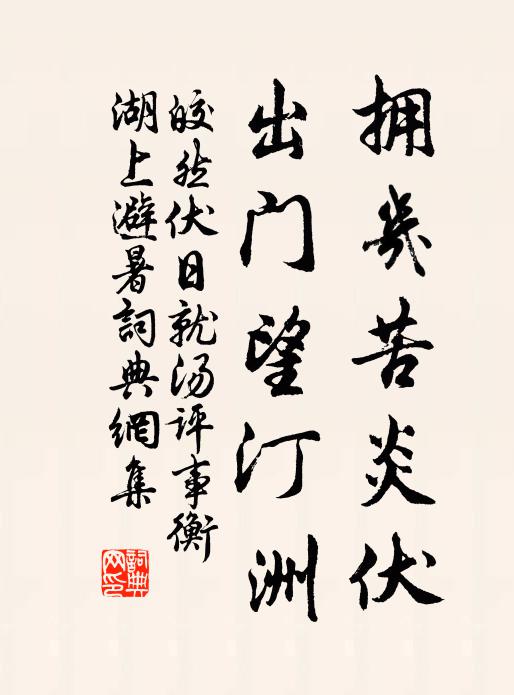 拥几苦炎伏
出门望汀洲
皎然伏日就汤评事衡
湖上避暑詞典網集
詞典网印